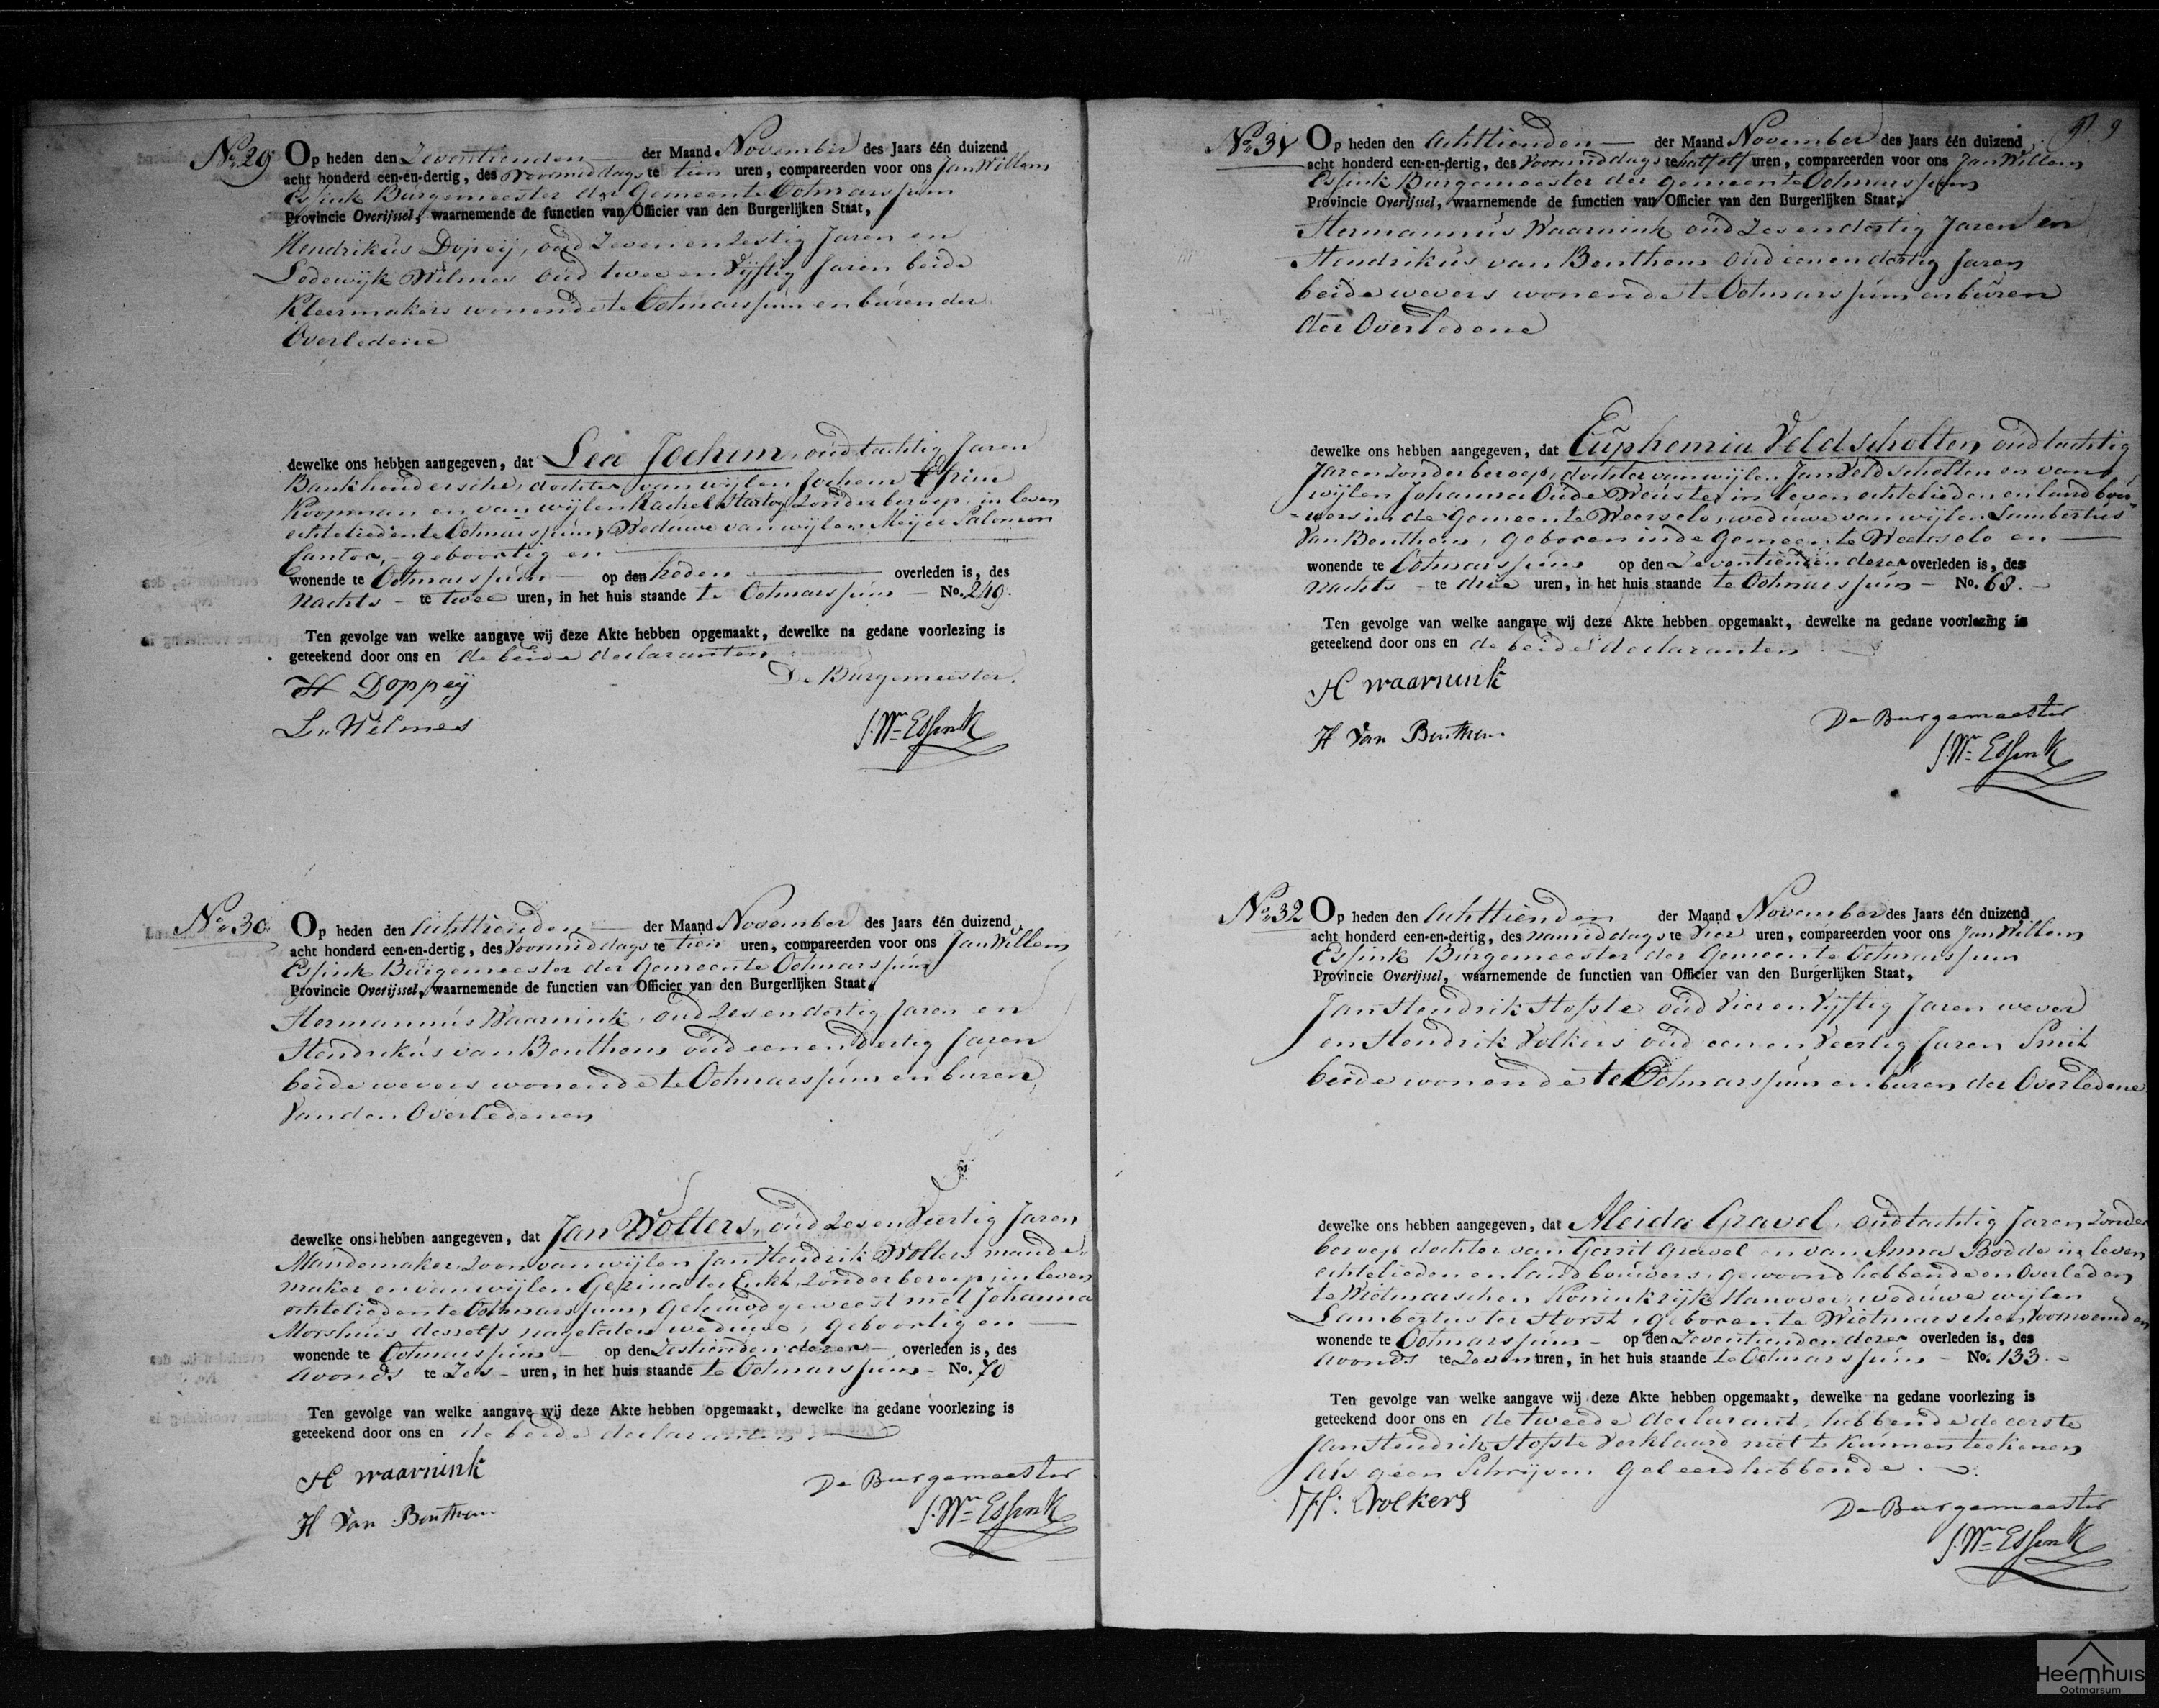 No 29 Op heden den Zeventienden der Maand November des Jaars één duizend
acht honderd een-en-dertig, des Voormiddags te tien uren, compareerden voor ons Jan Willem
Essink Burgemeester der Gemeente Ootmarssum
Provincie Overijssel, waarnemende de functien van Officier van den Burgerlijken Staat,
Hendrikus Doppeij, oud Zeven en Zestig Jaren en
Lodewijk Wilmes oud twee en Vijftig Jaren beide
Kleermakers wonende te Ootmarssum en buren der
Overledene
dewelke ons hebben aangegeven, dat Lea Jochem, oud tachtig Jaren
Bankhoudersche, dochter van wijlen Jochem
Koopman en van wijlen Rachel Hartog Zonder beroep, in leven
echtelieden te Ootmarssum, Weduwe van wijlen Meijer Salomon
Cantor, - geboortig en
wonende te Ootmarssum op den heden overleden is, des
Nachts - te twee uren, in het huis staande te Ootmarssum - No. 249.
Ten gevolge van welke aangave wij deze Akte hebben opgemaakt, dewelke na gedane voorlezing is
geteekend door ons en de beide declaranten
H Doppeÿ
De Burgemeester.
L. Wilmes
J. Wm Essink
No 30 Op heden den Achttienden der Maand November des Jaars één duizend
acht honderd een-en-dertig, des Voormiddags te tien uren, compareerden voor ons Jan Willem
Essink Burgemeester der Gemeente Ootmarssum
Provincie Overijssel, waarnemende de functien van Officier van den Burgerlijken Staat,
Hermannus Waarnink, oud Zes en dertig Jaren en
Hendrikus van Benthem oud een en dertig Jaren
beide wevers wonende te Ootmarssum en buren
Van den Overledenen
dewelke ons hebben aangegeven, dat Jan Wolters, oud Zes en Veertig Jaren
Mandemaker, Zoon van wijlen Jan Hendrik Wolters mande-
maker en van wijlen Gezina ter Zonder beroep, in leven
echtelieden te Ootmarssum, Gehuwd geweest met Johanna
Morshuis deszelfs nagelaten weduwe, geboortig en
wonende te Ootmarssum - op den Zestienden dezer overleden is, des
Avonds te Zes - uren, in het huis staande te Ootmarssum - No. 70
Ten gevolge van welke aangave wij deze Akte hebben opgemaakt, dewelke na gedane voorlezing is
geteekend door ons en de beide declaranten.
H waarnink
De Burgemeester
H Van Benthem
J. Wm Essink
No 31 Op heden den Achttienden der Maand November des Jaars één duizend
acht honderd een-en-dertig, des Voormiddags te half elf uren, compareerden voor ons Jan Willem
Essink Burgemeester der gemeente Ootmarssum
Provincie Overijssel, waarnemende de functien van Officier van den Burgerlijken Staat,
Hermannus Waarnink oud Zes en dertig Jaren en
Hendrikus van Benthem oud een en dertig Jaren
beide wevers wonende te Ootmarssum en buren
der Overledene
dewelke ons hebben aangegeven, dat Euphemia Veldscholten, oud tachtig
Jaren Zonder beroep, dochter van wijlen Jan Veldscholten en van
wijlen Johanna Oude in leven echtelieden en landbou-
-wers in de Gemeente Weerselo, weduwe van wijlen Lambertus
Van Benthem, geboren in de Gemeente Weerselo en
wonende te Ootmarssum op den Zeventienden dezer overleden is, des
Nachts - te drie uren, in het huis staande te Ootmarssum - No. 68.
Ten gevolge van welke aangave wij deze Akte hebben opgemaakt, dewelke na gedane voorlezing is
geteekend door ons en de beide declaranten
H waarnink
De Burgemeester
H Van Benthem
J. Wm Essink
No 32 Op heden den Achttienden der Maand November des Jaars één duizend
acht honderd een-en-dertig, des namiddags te Vier uren, compareerden voor ons Jan Willem
Essink Burgemeester der Gemeente Ootmarssum
Provincie Overijssel, waarnemende de functien van Officier van den Burgerlijken Staat,
Jan Hendrik Hofste oud Vier en Vijftig Jaren wever
en Hendrik Volkers oud een en Veertig Jaren Smit
beide wonende te Ootmarssum en buren der Overledene
dewelke ons hebben aangegeven, dat Aleida Gravel, oud tachtig Jaren, Zonder
beroep dochter van Gerrit Gravel en van Anna Bodde in leven
echtelieden en landbouwers, gewoond hebbende en Overleden
te Wietmarschen Koninkrijk Hanover, weduwe wijlen
Lambertus ter Horst, geboren te Wietmarschen voornoemd en
wonende te Ootmarssum - op den Zeventienden dezer overleden is, des
Avonds te Zeven uren, in het huis staande te Ootmarssum - No. 133.
Ten gevolge van welke aangave wij deze Akte hebben opgemaakt, dewelke na gedane voorlezing is
geteekend door ons en de tweede declarant, hebbende de eerste
Jan Hendrik Hofste verklaard niet te kunnen teekenen
als geen Schrijven geleerd hebbende.
H: Volkers
De Burgemeester
J. Wm Essink
Heemhuis
Ootmarsum